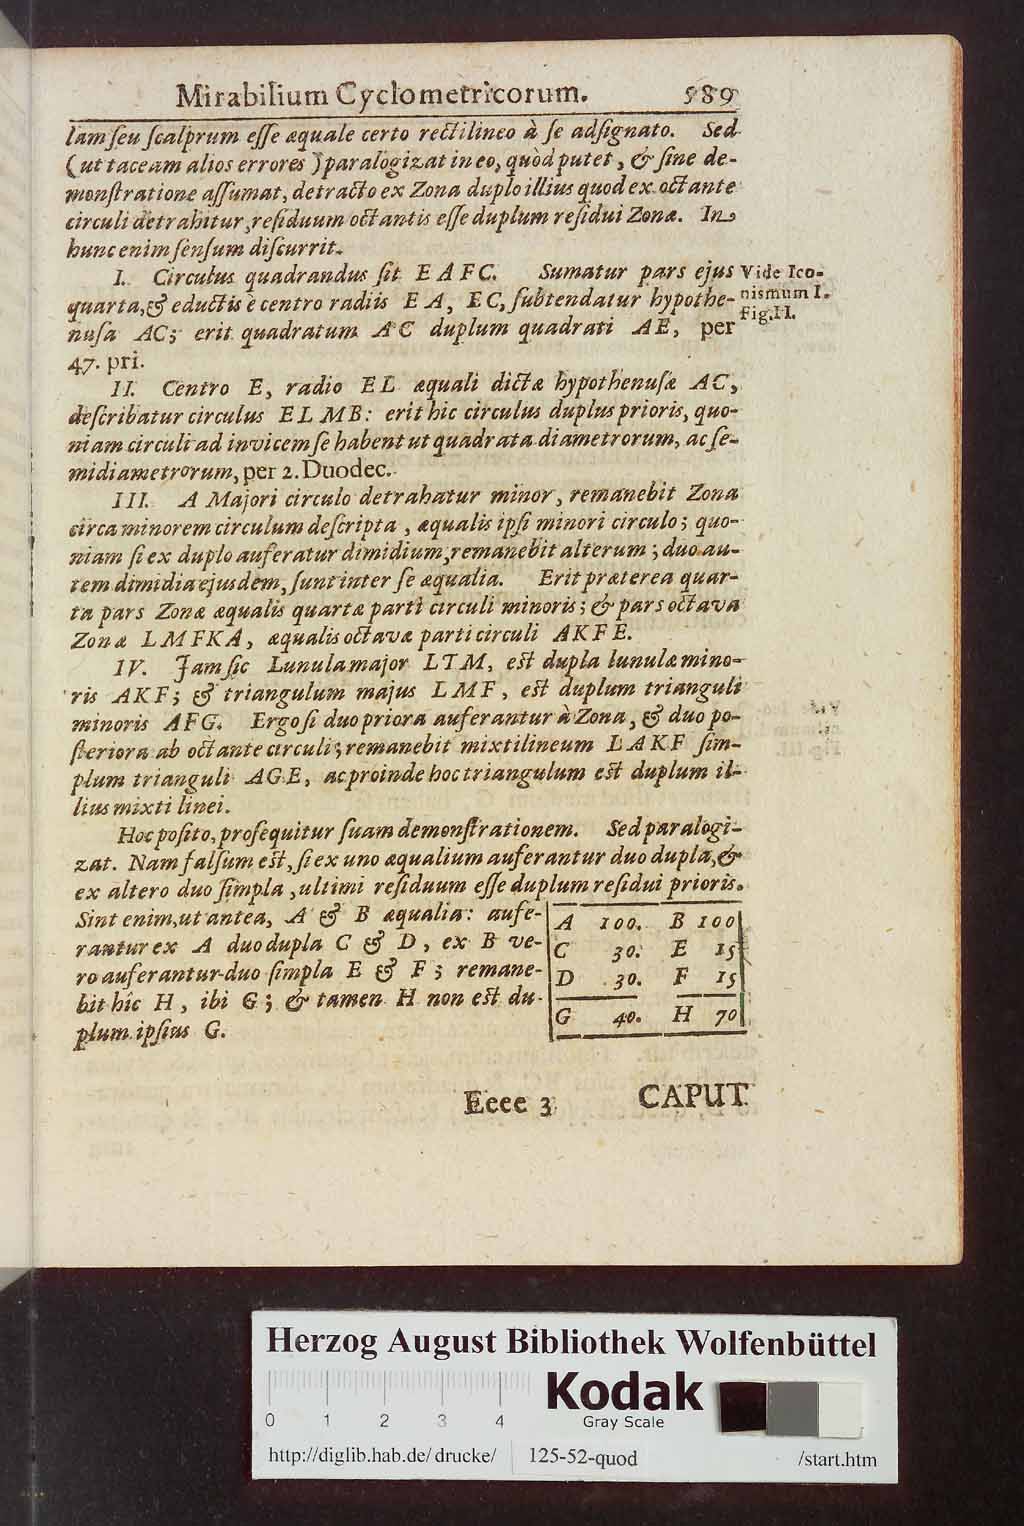 Mirabilium Cyclometricorum. 589
lam ſeu ſcalprum eſſe æquale certo rectilineo à ſe adſignato. Sed
(ut taceam alios errores) paralogizat in eo, quòd putet, & ſine de-
monſtratione aſſumat, detracto ex Zona duplo illius quod ex octante
circuli detrahitur, reſiduum octantis eſſe duplum reſidui Zonæ. In
hunc enim ſenſum diſcurrit.
I. Circulus quadrandus ſit EAFC. Sumatur pars ejus
quarta, & eductis è centro radiis EA, EC, ſubtendatur hypothe-
nuſa AC; erit quadratum AC duplum quadrati AE, per
47. pri.
Vide Ico-
nismum I.
Fig. II.
II. Centro E, radio EL æquali dictæ hypothenuſæ AC,
deſcribatur circulus ELMB: erit hic circulus duplus prioris, quo-
niam circuli ad invicem ſe habent ut quadrata diametrorum, ac ſe-
midiametrorum, per 2. Duodec.
III. A Majori circulo detrahatur minor, remanebit Zona
circa minorem circulum deſcripta, æqualis ipſi minori circulo; quo-
niam ſi ex duplo auferatur dimidium, remanebit alterum; duo au-
tem dimidia ejusdem, ſunt inter ſe æqualia. Erit præterea quar-
ta pars Zonæ æqualis quartæ parti circuli minoris; & pars octava
Zonæ LMFKA, æqualis octavæ parti circuli AKFE.
IV. Jam ſic Lunula major LTM, eſt dupla lunulæ mino-
ris AKF; & triangulum majus LMF, eſt duplum trianguli
minoris AFG. Ergo ſi duo priora auferantur à Zona, & duo po-
ſteriora ab octante circuli; remanebit mixtilineum LAKF ſim-
plum trianguli AGE, ac proinde hoc triangulum eſt duplum il-
lius mixti linei.
Hoc poſito, proſequitur ſuam demonſtrationem. Sed paralogi-
zat. Nam falſum eſt, ſi ex uno æqualium auferantur duo dupla, &
ex altero duo ſimpla, ultimi reſiduum eſſe duplum reſidui prioris.
Sint enim, ut antea, A & B æqualia: aufe-
rantur ex A duo dupla C & D, ex B ve-
ro auferantur duo ſimpla E & F; remane-
bit hîc H, ibi G; & tamen H non eſt du-
plum ipſius G.
A 100. B 100
C 30. E 15
D 30. F 15
G 40. H 70
Eeee 3 CAPUT
Herzog August Bibliothek Wolfenbüttel
Kodak
Gray Scale
0 1 2 3 4
http://diglib.hab.de/drucke/ 125-52-quod /start.htm